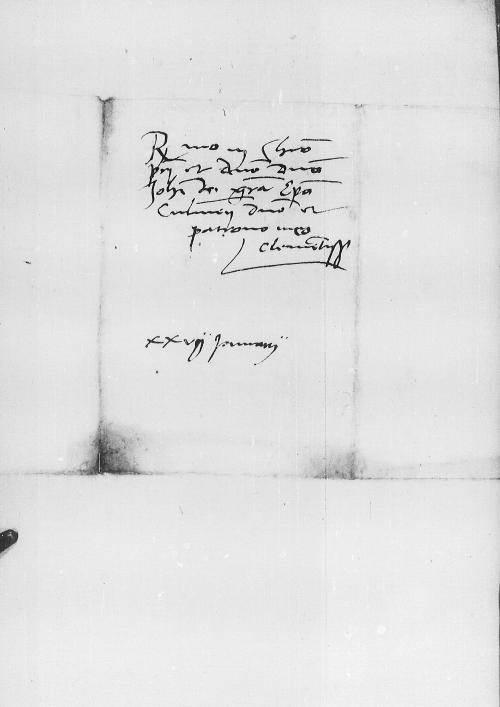 Rmo in Chro
prj et dno dno
Johi dei gra Epo
Culmen dno et
patrono meo
clementiss
xxvij Januarij